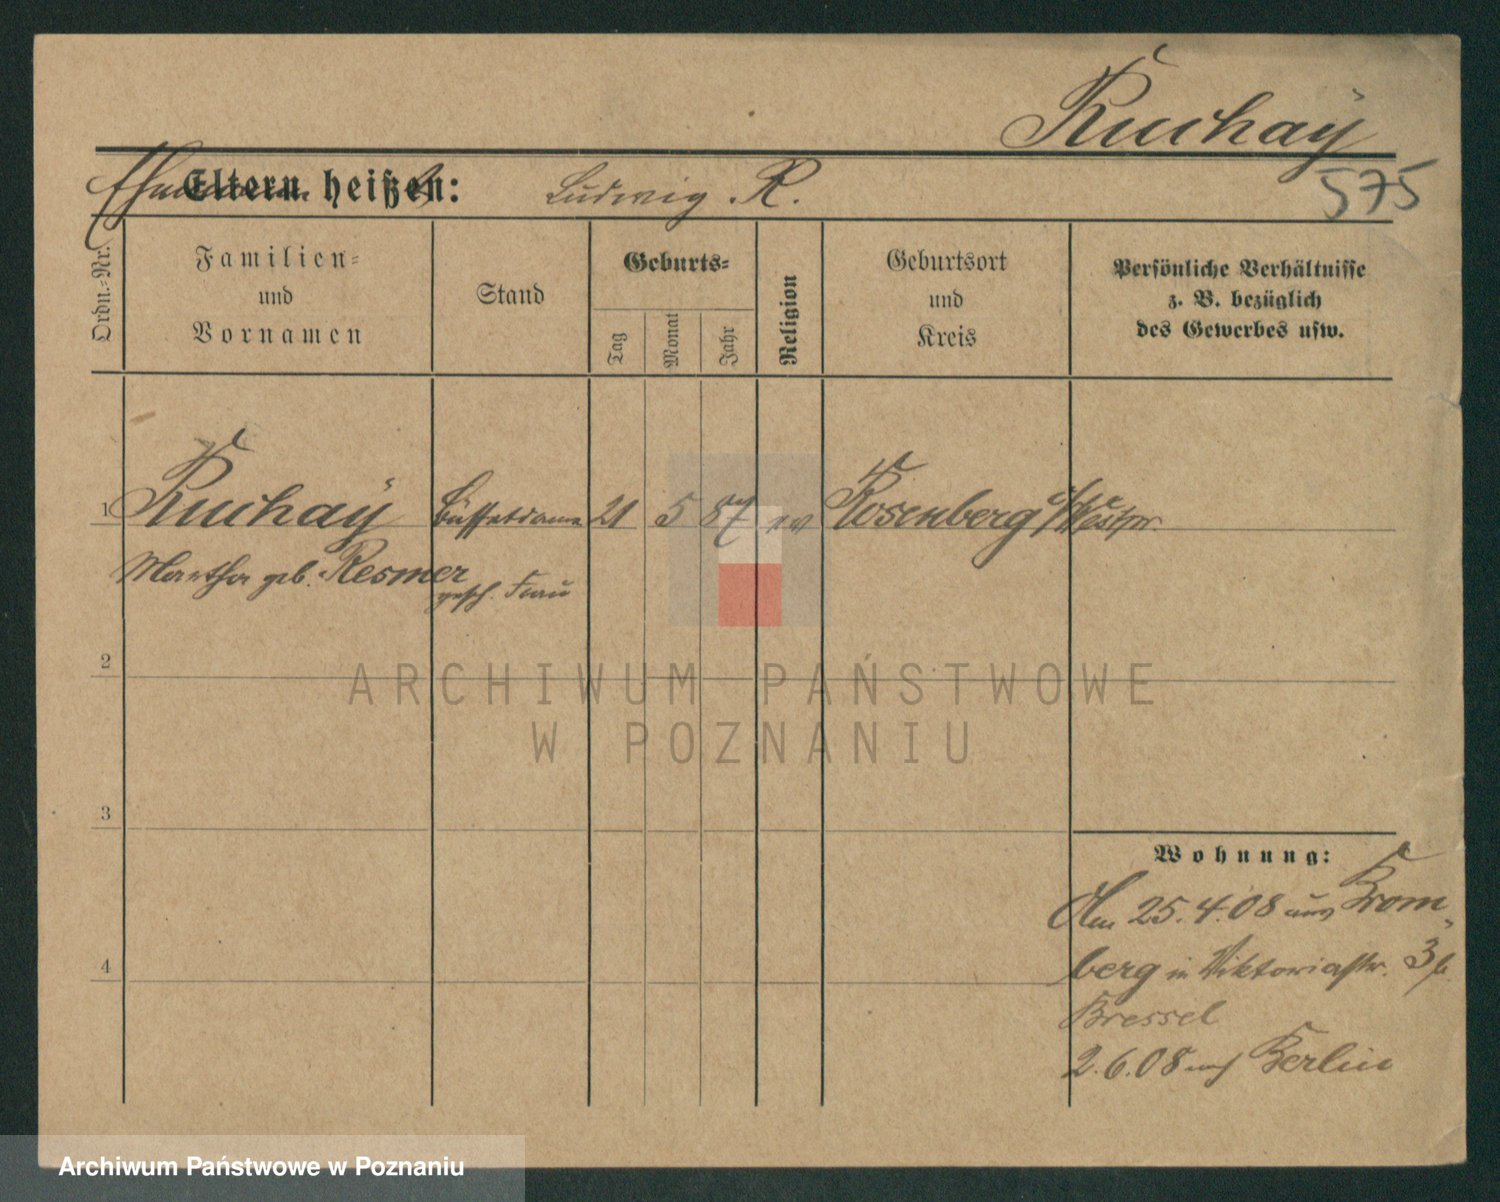 Ruchaÿ
575
Ehemann Eltern heißen: Ludwig R.
Ordn.=Nr.
Familien= und Vornamen
Stand
Geburts=
Tag
Monat
Jahr
Religion
Geburtsort und Kreis
Persönliche Verhältnisse
z. B. bezüglich
des Gewerbes usw.
1 Ruchaÿ Büffetdame 21 5 87 ev Rosenberg i/Westpr.
Martha geb. Resmer gesch. Frau
2
ARCHIWUM PAŃSTWOWE
W POZNANIU
3
Wohnung:
Am 25.4.08 aus Brom„
berg in Viktoriastr. 3 b.
4
Bressel
2.6.08 nach Berlin
Archiwum Państwowe w Poznaniu